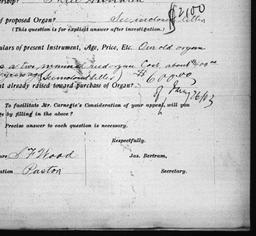 $2100
proposed Organ? See inclosed letter
(This question is for explicit answer after investigation.)
culars of present Instrument, Age, Price, Etc. Our old organ
is a two manual reed you Cost about
years ago (See inclosed letter) $600.00
nt already raised toward purchase of Organ?
To facilitate Mr. Carnegie's Consideration of your appeal, will you
by filling in the above?
Precise answer to each question is necessary.
Respectfully,
S F Wood Jas. Bertram,
ation Pastor Secretary.